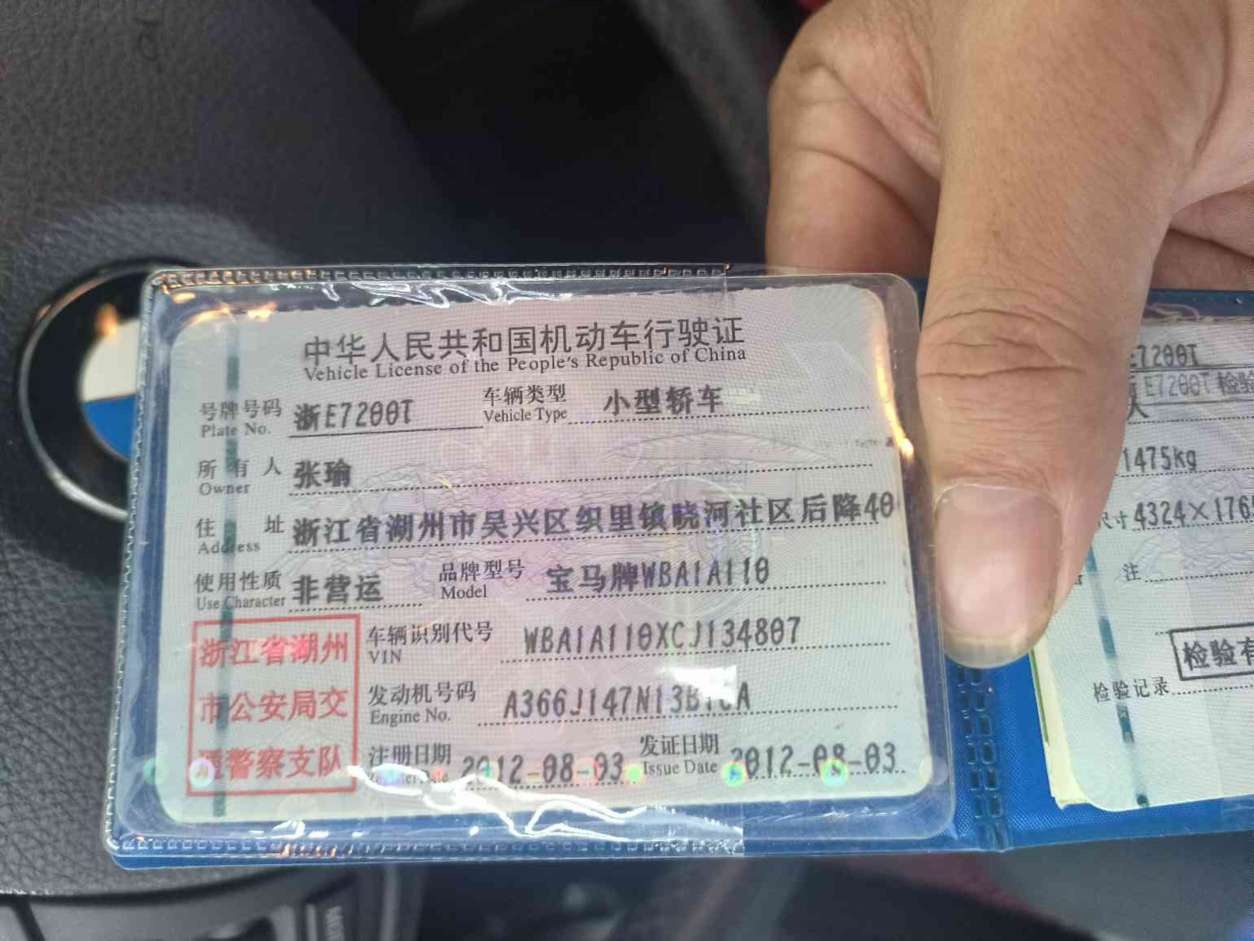 中华人民共和国机动车行驶证
Vehicle License of the People's Republic of China
号牌号码 浙E7200T 车辆类型 小型轿车
Plate No. Vehicle Type
所有人 张瑜
Owner
住址 浙江省湖州市吴兴区织里镇晓河社区后降40
Address
使用性质 非营运 品牌型号 宝马牌WBA1A110
Use Character Model
浙江省湖州
市公安局交
通警察支队
车辆识别代号 WBA1A110XCJ134807
VIN
发动机号码 A366J147N13B
Engine No.
注册日期 2012-08-03 发证日期 2012-08-03
Issue Date
E7200T
E7200T 检验
人
1475kg
尺寸 4324×176
注
检验有
检验记录